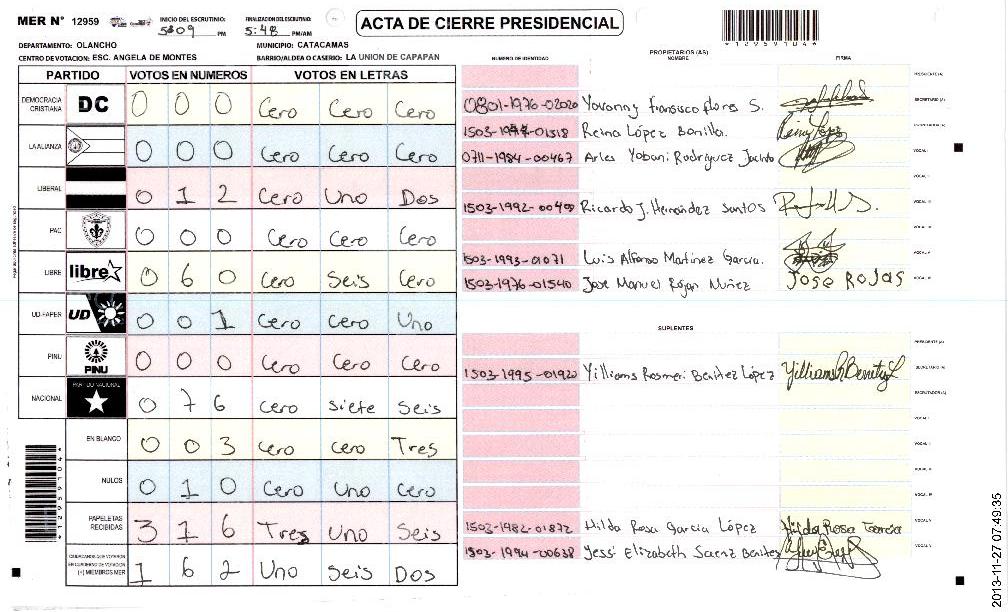 MER N° 12959 INICIO DEL ESCRUTINIO: 5:09 PM FINALIZACION DEL ESCRUTINIO: 5:48 PM/AM
ACTA DE CIERRE PRESIDENCIAL
*12959104*
DEPARTAMENTO: OLANCHO MUNICIPIO: CATACAMAS
CENTRO DE VOTACION: ESC. ANGELA DE MONTES BARRIO/ALDEA O CASERIO: LA UNION DE CAPAPAN
PARTIDO VOTOS EN NUMEROS VOTOS EN LETRAS
DEMOCRACIA CRISTIANA DC 0 0 0 Cero Cero Cero
LA ALIANZA 0 0 0 Cero Cero Cero
LIBERAL 0 1 2 Cero Uno Dos
PAC 0 0 0 Cero Cero Cero
LIBRE libre 0 6 0 Cero Seis Cero
UD-FAPER UD 0 0 1 Cero Cero Uno
PINU PINU 0 0 0 Cero Cero Cero
NACIONAL PARTIDO NACIONAL 0 7 6 Cero Siete Seis
EN BLANCO 0 0 3 Cero Cero Tres
NULOS 0 1 0 Cero Uno Cero
PAPELETAS RECIBIDAS 3 1 6 Tres Uno Seis
CIUDADANOS QUE VOTARON EN CUADERNO DE VOTACION (+) MIEMBROS MER 1 6 2 Uno Seis Dos
*12959104*
NUMERO DE IDENTIDAD PROPIETARIOS (AS) NOMBRE FIRMA
PRESIDENTE (A)
0801-1976-02020 Yovanny Francisco flores S. SECRETARIO (A)
Reina López Bonilla. Reina López ESCRUTADOR (A)
0711-1984-00467 Arles Yobani Rodriguez Jacinto VOCAL I
VOCAL II
Ricardo J. Hernández Santos VOCAL III
VOCAL IV
1503-1993-01071 Luis Alfonso Martinez Garcia. VOCAL V
1503-1976-01540 Jose Manuel Rojas Nuñez Jose Rojas
SUPLENTES
PRESIDENTE (A)
1503-1995-01920 Yilliams Rosmeri Benitez López SECRETARIO (A)
ESCRUTADOR (A)
VOCAL I
VOCAL II
VOCAL III
VOCAL IV
1503-1982-01872 Hilda Rosa Garcia López Hilda Rosa Garcia VOCAL V
1503-1994-00638 Yessi Elizabeth Saenz Benites
2013-11-27 07:49:35